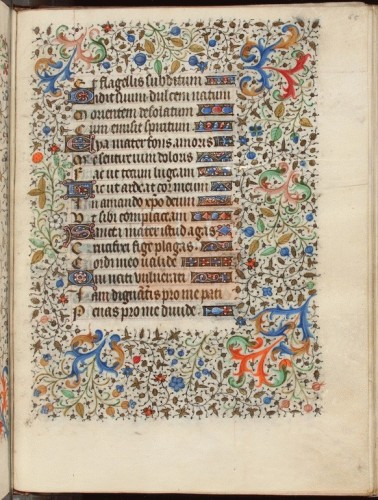 Et flagellis subditum
Vidit suum dulcem natum
Morientem desolatum
Cum emisit spiritum
Eya mater fons amoris
Me sentire vim doloris
Fac ut tecum lugeam
Fac ut ardeat cor meum
In amando xpo deum
Ut sibi complaceam
Sancta mater istud agas
Crucifixi fige plagas
Cordi meo valide
Tui nati vulnerati
Iam dignatis pro me pati
Penas pro me divide